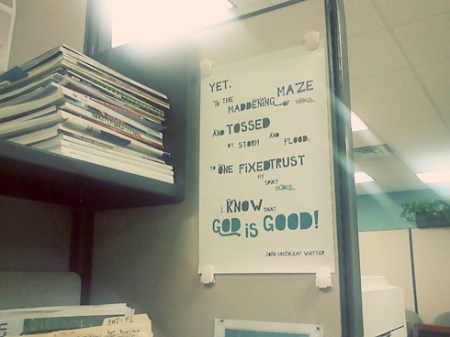 YET,
IN THE MADDENING MAZE OF THINGS,
AND TOSSED
BY STORM AND FLOOD,
TO ONE FIXED TRUST
MY SPIRIT CLINGS
I KNOW THAT
GOD IS GOOD!
JOHN GREENLEAF WHITTIER